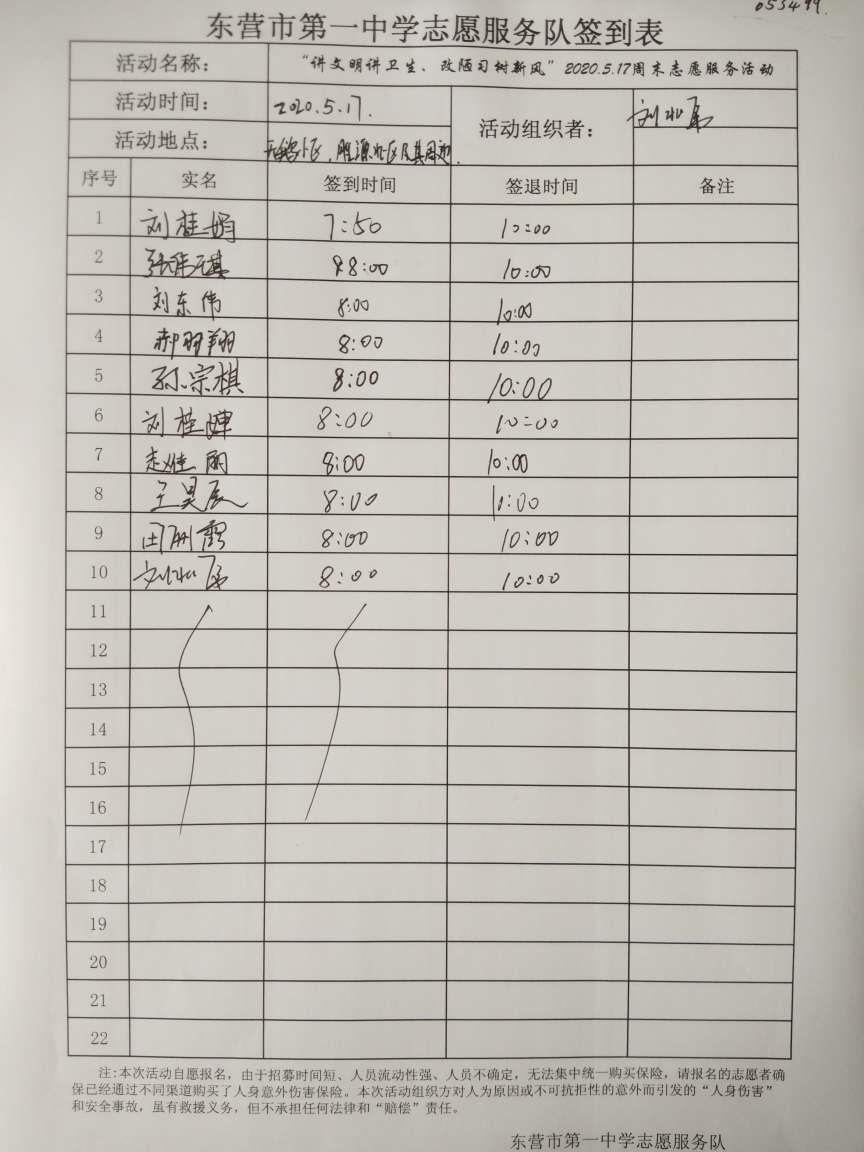 053499.
东营市第一中学志愿服务队签到表
活动名称： “讲文明讲卫生、改陋习树新风”2020.5.17周末志愿服务活动
活动时间： 2020.5.17.
活动组织者： 刘
活动地点： 小区，胜源社区及其周边.
序号 实名 签到时间 签退时间 备注
1 刘桂娟 7:50 10:00
2 张 琪 8:00 10:00
3 刘东伟 8:00 10:00
4 郝羽翔 8:00 10:00
5 孙宗棋 8:00 10:00
6 刘桂婵 8:00 10:00
7 赵 丽 8:00 10:00
8 王昊辰 8:00 10:00
9 田 霞 8:00 10:00
10 刘 8:00 10:00
11
12
13
14
15
16
17
18
19
20
21
22
注:本次活动自愿报名，由于招募时间短、人员流动性强、人员不确定，无法集中统一购买保险，请报名的志愿者确
保已经通过不同渠道购买了人身意外伤害保险。本次活动组织方对人为原因或不可抗拒性的意外而引发的“人身伤害”
和安全事故，虽有救援义务，但不承担任何法律和“赔偿”责任。
东营市第一中学志愿服务队